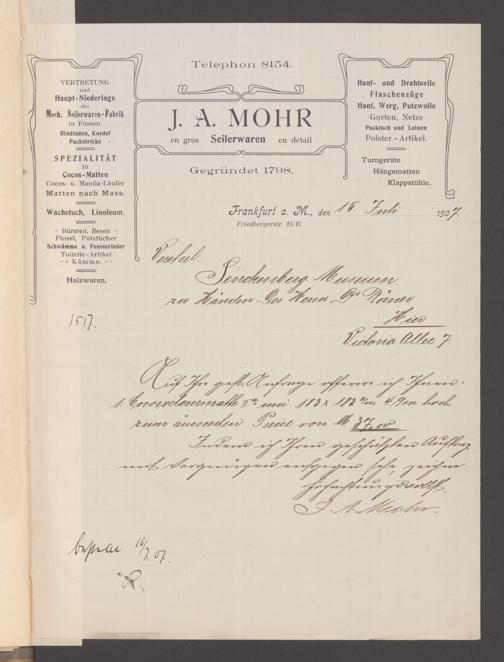 Telephon 8154.
VERTRETUNG
und
Haupt-Niederlage
der
Mech. Seilerwaren-Fabrik
in Füssen.
Bindfaden, Kordel
Packstricke
SPEZIALITÄT
in
Cocos-Matten
Cocos- u. Manila-Läufer
Matten nach Mass.
Wachstuch, Linoleum.
Bürsten, Besen
Pinsel, Putztücher
Schwämme u. Fensterleder
Toilette-Artikel
Kämme.
Holzwaren.
J. A. MOHR
en gros Seilerwaren en détail
Gegründet 1798.
Hanf- und Drahtseile
Flaschenzüge
Hanf, Werg, Putzwolle
Gurten, Netze
Packtuch und Leinen
Polster-Artikel.
Turngeräte
Hängematten
Klappstühle.
Frankfurt a. M., den 15 Juli 1907.
Friedbergerstr. 15/17.
Senckenberg. Museum
zu Händen des Herrn Dr Römer
Hier
Victoria Allee 7
1517.
Auf Ihre gefl. Anfrage offerire ich Ihnen
1 Cocosdamenmatte Ia 183 x 182 cm 4 cm hoch
zum äussersten Preise von M 37.00
Indem ich Ihrem geschätzten Auftrag
mit Vergnügen entgegen sehe, zeichne
hochachtungsvollst
J. A. Mohr.
bestellt 16/7. 07.
R.